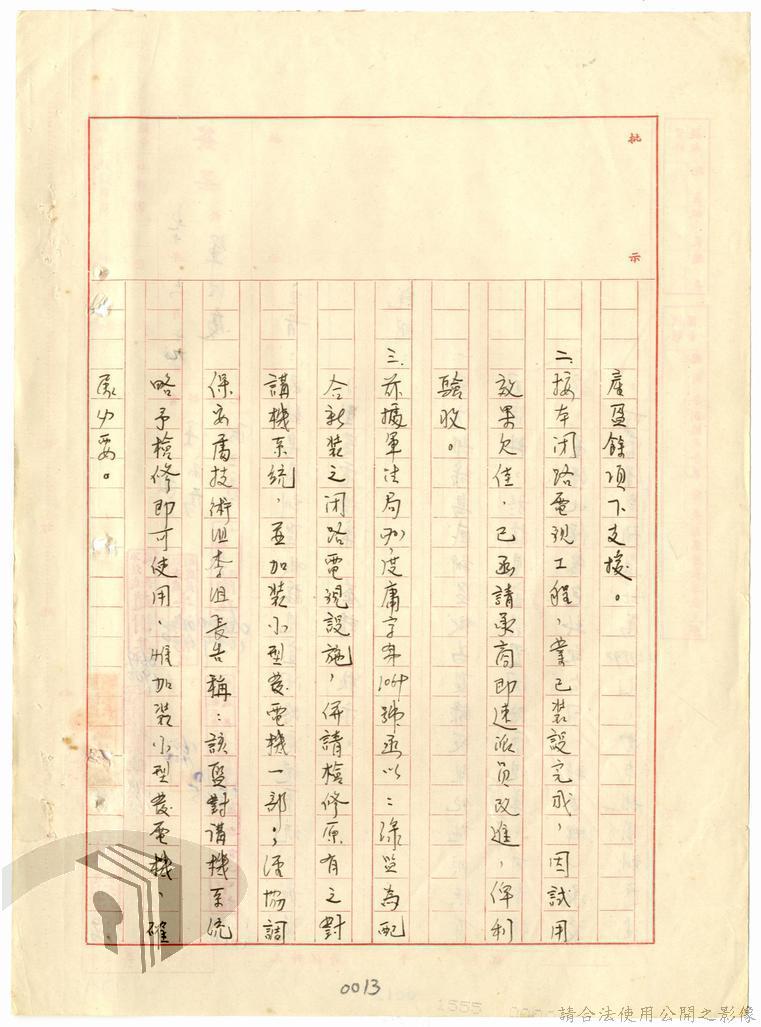 批示
產盈餘項下支撥。
二、按本閉路電視工程，業已裝設完成，因試用
效果欠佳，已函請承商即速派員改進，俾利
驗收。
三、茲據軍法局 度庸字第1064號函以：綠監為配
合新裝之閉路電視設施，併請檢修原有之對
講機系統，並加裝小型發電機一部；經協調
保安處技術組李組長告稱：該監對講機系統
略予檢修即可使用，惟加裝小型發電機，確
屬必要。
0013
1555
請合法使用公開之影像